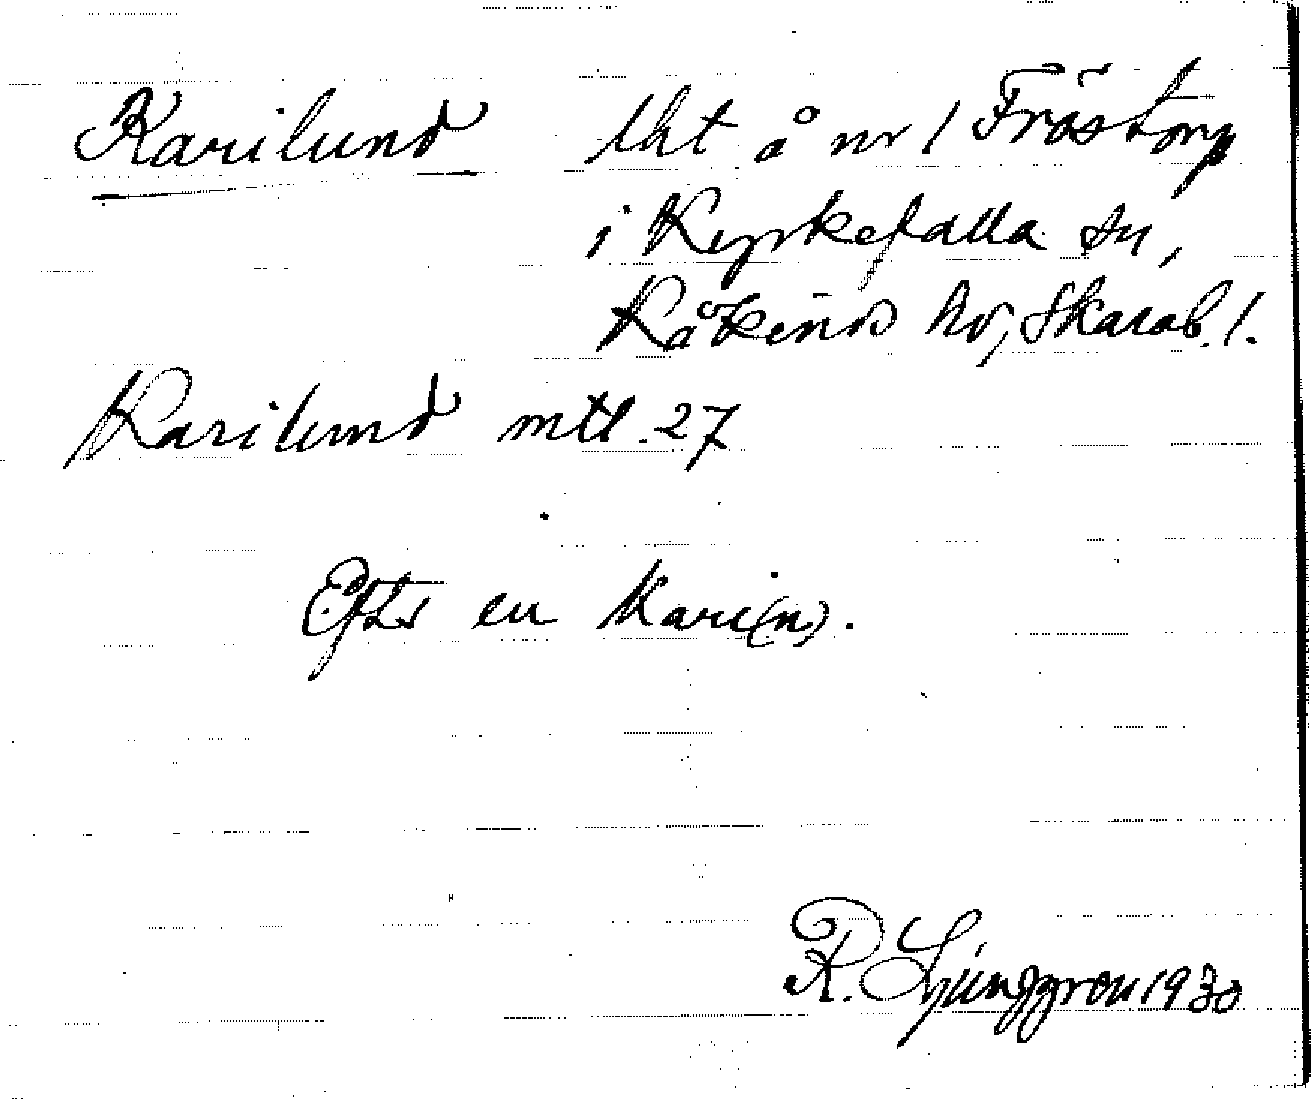 Karilund lht å nr 1 Fröstorp
i Kyrkefalla sn,
Kåkinds hd, Skarab. l.
Karilund mtl. 27
Efter en Kari(n).
R. Ljunggren 1930